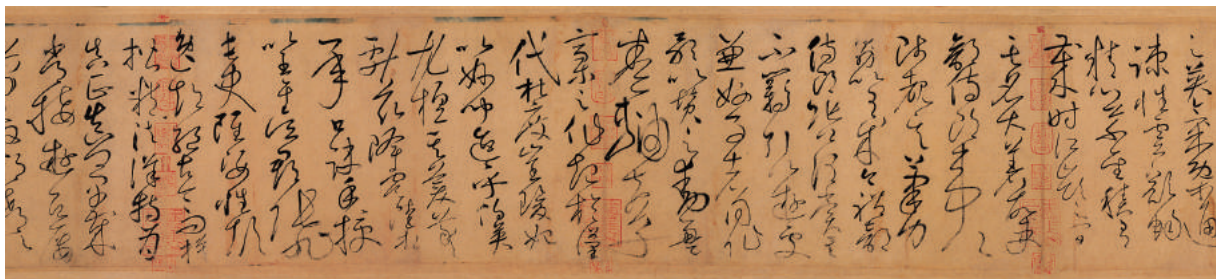 之英氣概通
疎性靈豁暢
精心草聖積有
歲時江嶺之間
其名大著故吏
部侍郎韋公
陟覩其筆力
勗以有成今禮部
侍郎張公謂賞其
不羈引以遊處
兼好事者同作
歌以贊之動盈
卷軸夫草
藁之作起於漢
代杜度崔瑗始
以妙聞迨乎伯英
尤擅其美羲
獻茲降虞陸相
承口訣手授
以至于吳郡張旭
長史雖姿性顛
逸超絕古今而模
楷精法詳特為
真正真卿早歲
常接遊居屢